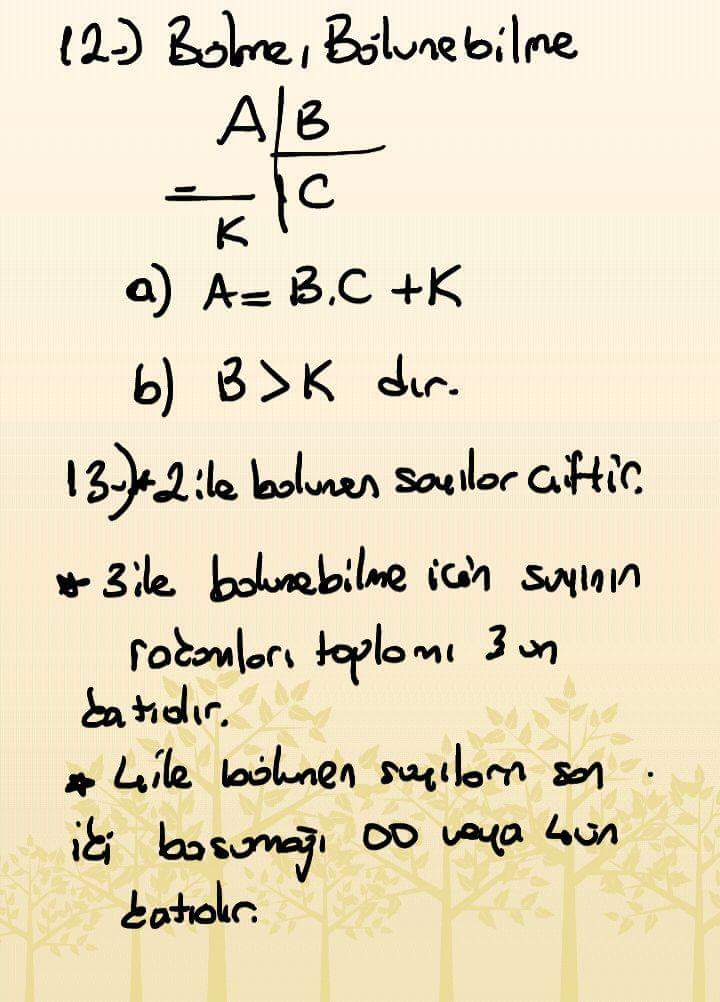 12-) Bölme, Bölünebilme
A | B
= | C
K
a) A = B.C + K
b) B > K dır.
13-)* 2 ile bölünen sayılar çiftir.
* 3 ile bölünebilme için sayının
rakamları toplamı 3 ün
katıdır.
* 4 ile bölünen sayıların son
iki basamağı 00 veya 4 ün
katıdır.